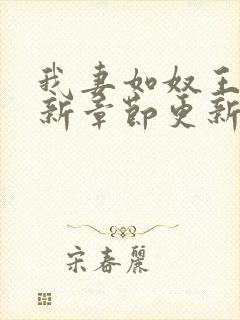 我妻如奴王
新章節更新
宋春麗